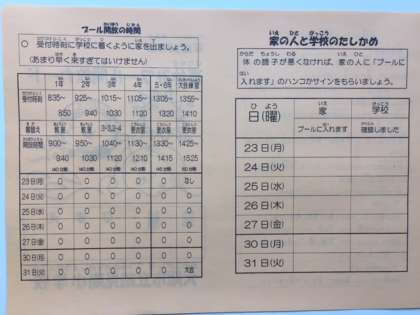 プール開放の時間
○ 受付時刻に学校に着くように家を出ましょう。
（あまり早く来すぎてはいけません）
1年 2年 3年 4年 5・6年 大会練習
受付時刻 8:35～ 9:25～ 10:15～ 11:05～ 13:05～ 13:55～
8:40 9:30 10:20 11:10 13:10 14:00
着替え 教室 教室 更衣室 更衣室 更衣室
開放時間 9:00～ 9:50～ 10:40～ 11:30～ 13:30～ 14:25～
9:40 10:30 11:20 12:10 14:15 15:25
23日(月) ○ ○ ○ ○ ○ なし
24日(火) ○ ○ ○ ○ ○ ○
25日(水) ○ ○ ○ ○ ○ ○
26日(木) ○ ○ ○ ○ ○ ○
27日(金) ○ ○ ○ ○ ○ ○
30日(月) ○ ○ ○ ○ ○ ○
31日(火) ○ ○ ○ ○ ○ 大会
家の人と学校のたしかめ
体の調子が悪くなければ、家の人に「プールに
入れます」のハンコかサインをもらいましょう。
日(曜) 家 学校
プールに入れます 確認しました
23日(月)
24日(火)
25日(水)
26日(木)
27日(金)
30日(月)
31日(火)